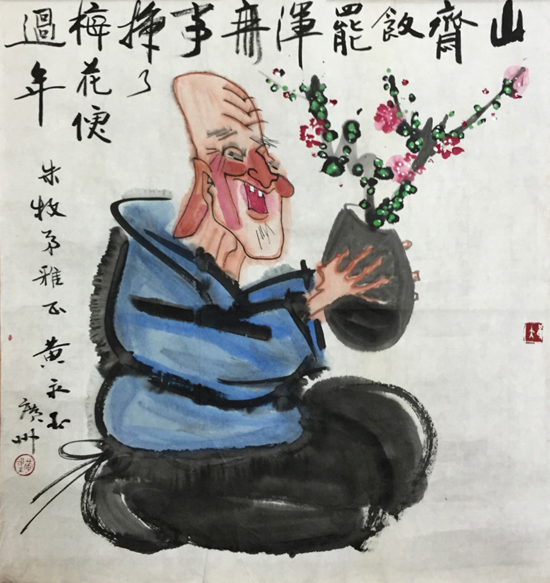 山齋飯罷渾無事插了梅花便過年
朱牧弟雅正 黄永玉
廣州